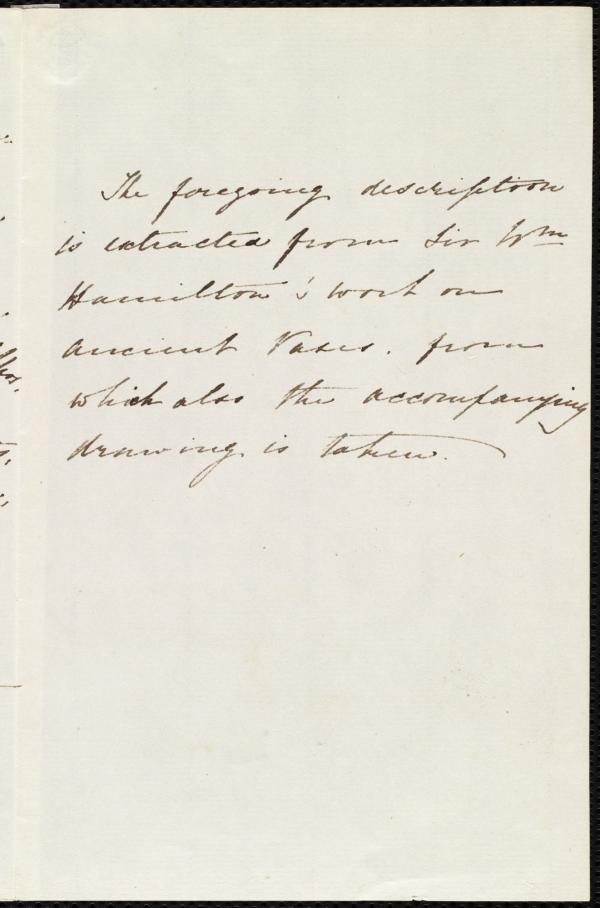 The foregoing description
is extracted from Sir Wm
Hamilton's work on
ancient Vases. from
which also the accompanying
drawing is taken.